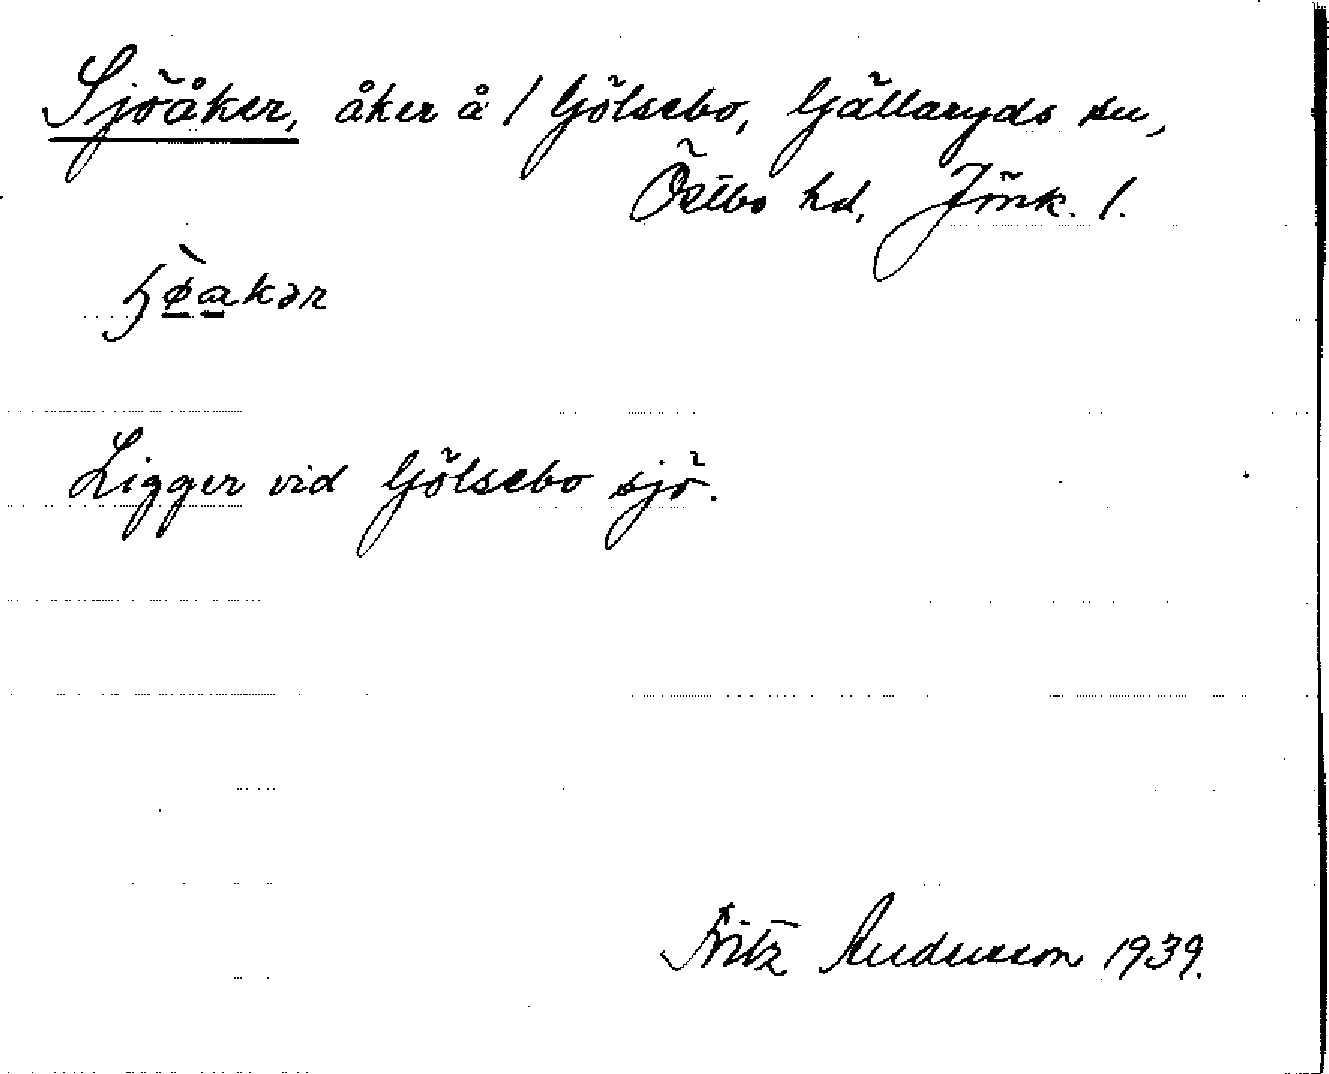 Sjöåker, åker å 1 Gölsebo, Gällaryds sn,
Östbo hd, Jönk. l.
Ligger vid Gölsebo sjö.
Fritz Andersson 1939.